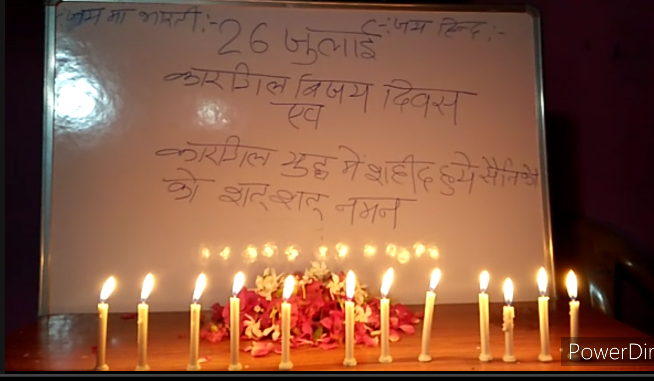 जय माँ भारती :- -: जय हिन्द :-
26 जुलाई
कारगिल विजय दिवस
एवं
कारगिल युद्ध में शहीद हुये सैनिको
को शत् शत् नमन
PowerDir